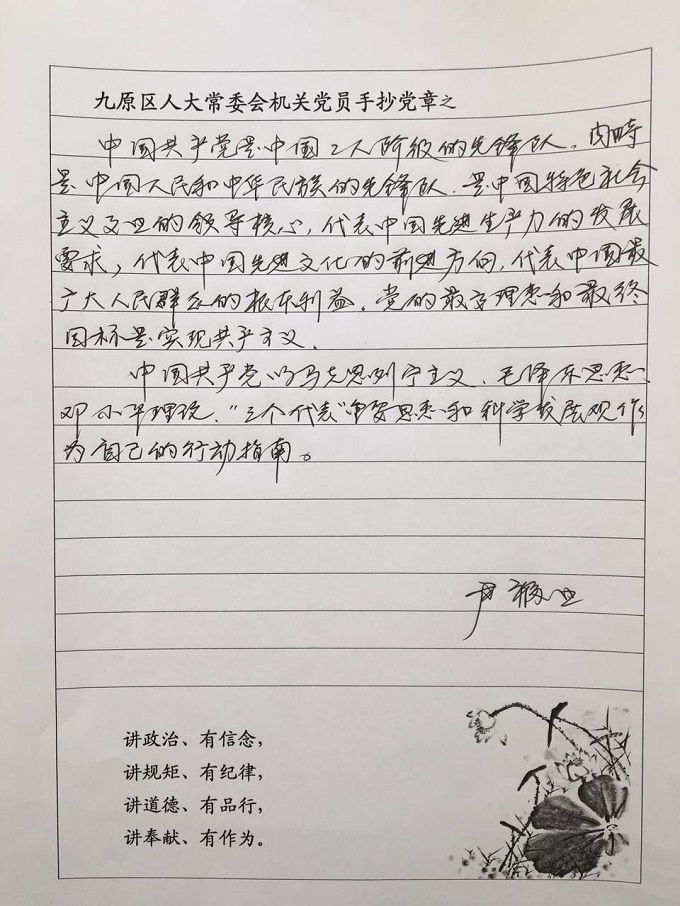 九原区人大常委会机关党员手抄党章之
中国共产党是中国工人阶级的先锋队，同时
是中国人民和中华民族的先锋队，是中国特色社会
主义事业的领导核心，代表中国先进生产力的发展
要求，代表中国先进文化的前进方向，代表中国最
广大人民群众的根本利益。党的最高理想和最终
目标是实现共产主义。
中国共产党以马克思列宁主义、毛泽东思想、
邓小平理论、“三个代表”重要思想和科学发展观作
为自己的行动指南。
讲政治、有信念，
讲规矩、有纪律，
讲道德、有品行，
讲奉献、有作为。